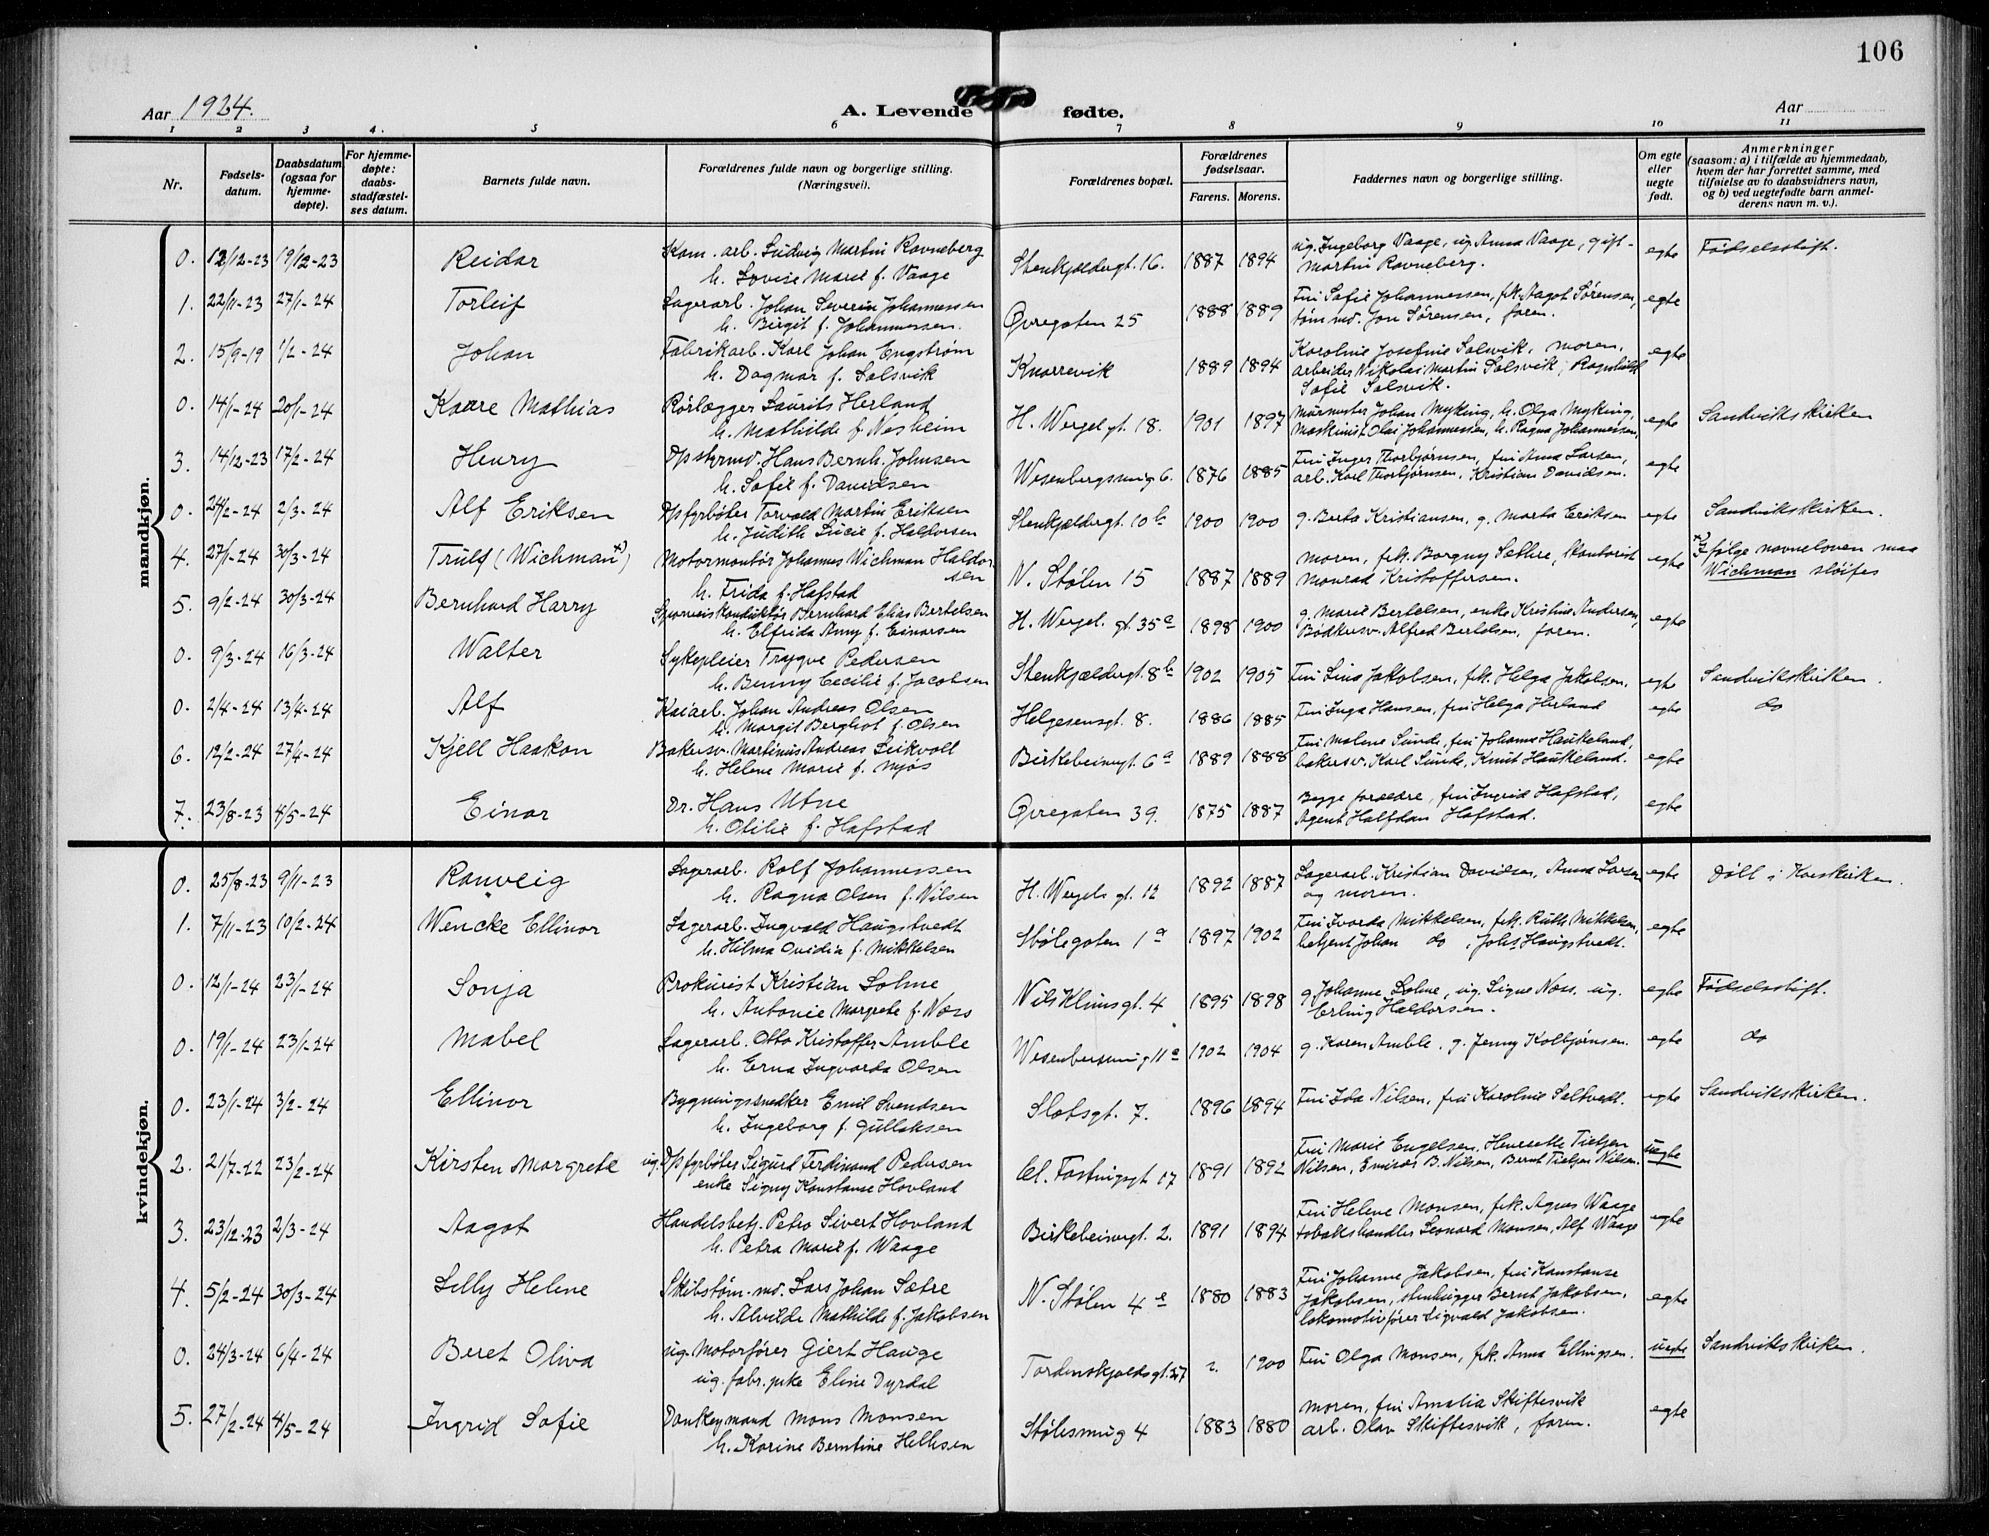 106
Aar 1924.
A. Levende fødte.
Aar
1 2 3 4. 5 6 7 8 9 10 11
Nr.
Fødselsdatum.
Daabsdatum (ogsaa for hjemmedøpte).
For hjemmedøpte: daabsstadfæstelses datum.
Barnets fulde navn.
Forældrenes fulde navn og borgerlige stilling. (Næringsvei).
Forældrenes bopæl.
Forældrenes fødselsaar.
Farens. Morens.
Faddernes navn og borgerlige stilling.
Om egte eller uegte født.
Anmerkninger (saasom: a) i tilfælde av hjemmedaab, hvem der har forrettet samme, med tilføielse av to daabsvidners navn, og b) ved uegtefødte barn anmelderens navn m. v.).
mandkjøn.
0. 12/12-23 19/12-23 Reidar Kom. arb. Ludvig Martin Ravneberg Stenkjeldergt. 16. 1887 1894 ug. Ingeborg Vaage, ug. Anna Vaage, gift- egte Fødselsstift.
h. Lovise Marie f. Vaage Martin Ravneberg.
1. 22/11-23 27/1-24 Torleif Lagerarb. Johan Severin Johannessen Øvregaten 25 1888 1889 Fru Sofie Johannessen, frk. Aagot Sørensen, egte
h. Birgit f. Johannessen. tømmd. Jon Sørensen, faren.
2. 15/9-19 1/2-24 Johan Fabrikarb. Karl Johan Engstrøm Knarrevik 1889 1894 Karoline Josefine Solsvik, moren, egte
h. Dagmar f. Solsvik arbeider Nikolai Martin Solsvik, Ragnhild
Sofie Solsvik.
0. 14/1-24 20/1-24 Kaare Mathias Rørlægger Laurits Herland H. Wergel. gt. 18. 1901 1897 Murmester Johan Myking, h. Olga Myking, egte Sandvikskirken
h. Mathilde f. Nesheim Maskinist Olai Johannessen, h. Ragna Johannessen,
3. 14/12-23 17/2-24 Henry Dpstyrmd. Hans Bernh. Johnsen Wesenbergsmug 6. 1876 1885 Fru Inger Thorbjørnsen, fru Anna Larsen, egte
h. Sofie f. Davidsen arb. Karl Thorbjørnsen, Kristian Davidsen.
0. 24/2-24 2/3-24 Alf Eriksen Dpfyrbøter Torvald Martin Eriksen Stenkjeldergt. 10 b 1900 1900 g. Berta Kristiansen, g. Marta Eriksen egte Sandvikskirken.
h. Judith Lucie f. Haldorsen
4. 27/1-24 30/3-24 Truls (Wichman x) Motormontør Johannes Wichman Haldorsen N. Stølen 15 1887 1889 moren, frk. Borgny Sættre, Kontorist egte x) Ifølge navneloven maa
h. Frida f. Hafstad Monrad Kristoffersen. Wichman sløifes
5. 9/2-24 30/3-24 Bernhard Harry Sporveiskonduktør Bernhard Elias Bertelsen H. Wergel. gt. 35 a 1898 1900 g. Marie Bertelsen, enke Kristine Andersen, egte
h. Elfrida Anny f. Einarsen Bødkersv. Alfred Bertelsen, faren.
0. 9/3-24 16/3-24 Walter Sykepleier Trygve Pedersen Stenkjeldergt. 8 b 1902 1905 Fru Lina Jakobsen, frk. Helga Jakobsen. egte Sandvikskirken.
h. Benny Cecilie f. Jacobsen
0. 2/4-24 13/4-24 Alf Kaiarb. Johan Andreas Olsen Helgesensgt. 8. 1886 1885 Fru Inga Hansen, fru Helga Herland egte do
h. Margit Bergliot f. Olsen
6. 12/2-24 27/4-24 Kjell Haakon Bakersv. Martinus Andreas Leikvoll Birkebeinergt. 6 a 1889 1888 Fru Malene Sunde, fru Johanne Haukeland, egte
h. Helene Marie f. Mjøs bakersv. Karl Sunde, Knut Haukeland.
7. 23/8-23 4/5-24 Einar Dr. Hans Utne Øvregaten 39. 1875 1887 Begge forældre, fru Ingrid Hafstad, egte
h. Otilie f. Hafstad Agent Halfdan Hafstad.
kvindekjøn.
0. 25/8-23 9/11-23 Ranveig Lagerarb. Rolf Johannessen H. Wergels gt 12 1892 1887 Lagerarb. Kristian Davidsen, Anna Larsen egte Døbt i Korskirken.
h. Ragna Olsen f. Nilsen og moren.
1. 7/11-23 10/2-24 Wencke Ellinor Lagerarb. Ingvald Haugstvedt Stølegaten 1 a 1897 1902 Fru Ivarda Mikkelsen, frk. Ruth Mikkelsen, egte
h. Hilma Ovidia f. Mikkelsen betjent Johan do, Johs Haugstvedt.
0. 12/1-24 23/1-24 Sonja Prokurist Kristian Lohne Nils Klimsgt. 4 1895 1898 g. Johanne Lohne, ug. Signe Næss, ug. egte Fødselsstift.
h. Antonie Margrete f. Næss Erling Haldorsen.
0. 19/1-24 23/1-24 Mabel Lagerarb. Otto Kristoffer Amble Wesenbersmug 11 a 1902 1904 g. Karen Amble, g. Jenny Kolbjørnsen. egte do
h. Erna Ingvarda Olsen
0. 23/1-24 3/2-24 Ellinor Bygningssnedker Emil Svendsen Slotsgt. 7. 1896 1894 Fru Ida Nilsen, fru Karoline Seltvedt. egte Sandvikskirken.
h. Ingeborg f. Gullaksen
2. 21/7-22 23/2-24 Kirsten Margrete ug. Dpfyrbøter Sigurd Ferdinand Pedersen Cl. Fastingsgt 17 1891 1892 Fru Marie Engelsen, Henrette Tietjen uegte
enke Signy Konstanse Hovland Nilsen, Emisær B. Nilsen, Bernt Tietjen Nilsen.
3. 23/12-23 2/3-24 Aagot Handelsbetj. Petro Sivert Hovland Birkebeinergt. 2. 1891 1894 Fru Helene Monsen, frk. Agnes Waage egte
h. Petra Marie f. Waage tobakshandler Leonard Monsen, Alf Waage
4. 5/2-24 30/3-24 Lilly Helene Skibstøm.-md. Lars Johan Sætre N. Stølen 4 e 1880 1883 Fru Johanne Jakobsen, fru Konstanse egte
h. Alvilde Mathilde f. Jakobsen Jakobsen, stenhugger Bernt Jakobsen,
lokomotivfører Sigvald Jakobsen.
0. 24/3-24 6/4-24 Beret Oliva ug. Motorfører Giert Hauge Tordenskjoldsgt. 27 ? 1900 Fru Olga Monsen, frk. Anna Ellingsen. uegte Sandvikskirken.
ug. fabr. pike Eline Dyrdal
5. 27/2-24 4/5-24 Ingrid Sofie Donkeymand Mons Monsen Stølesmug 4 1883 1880 moren, fru Amalia Skiftesvik egte
h. Karine Berntine Hellesen arb. Olav Skiftesvik, faren.